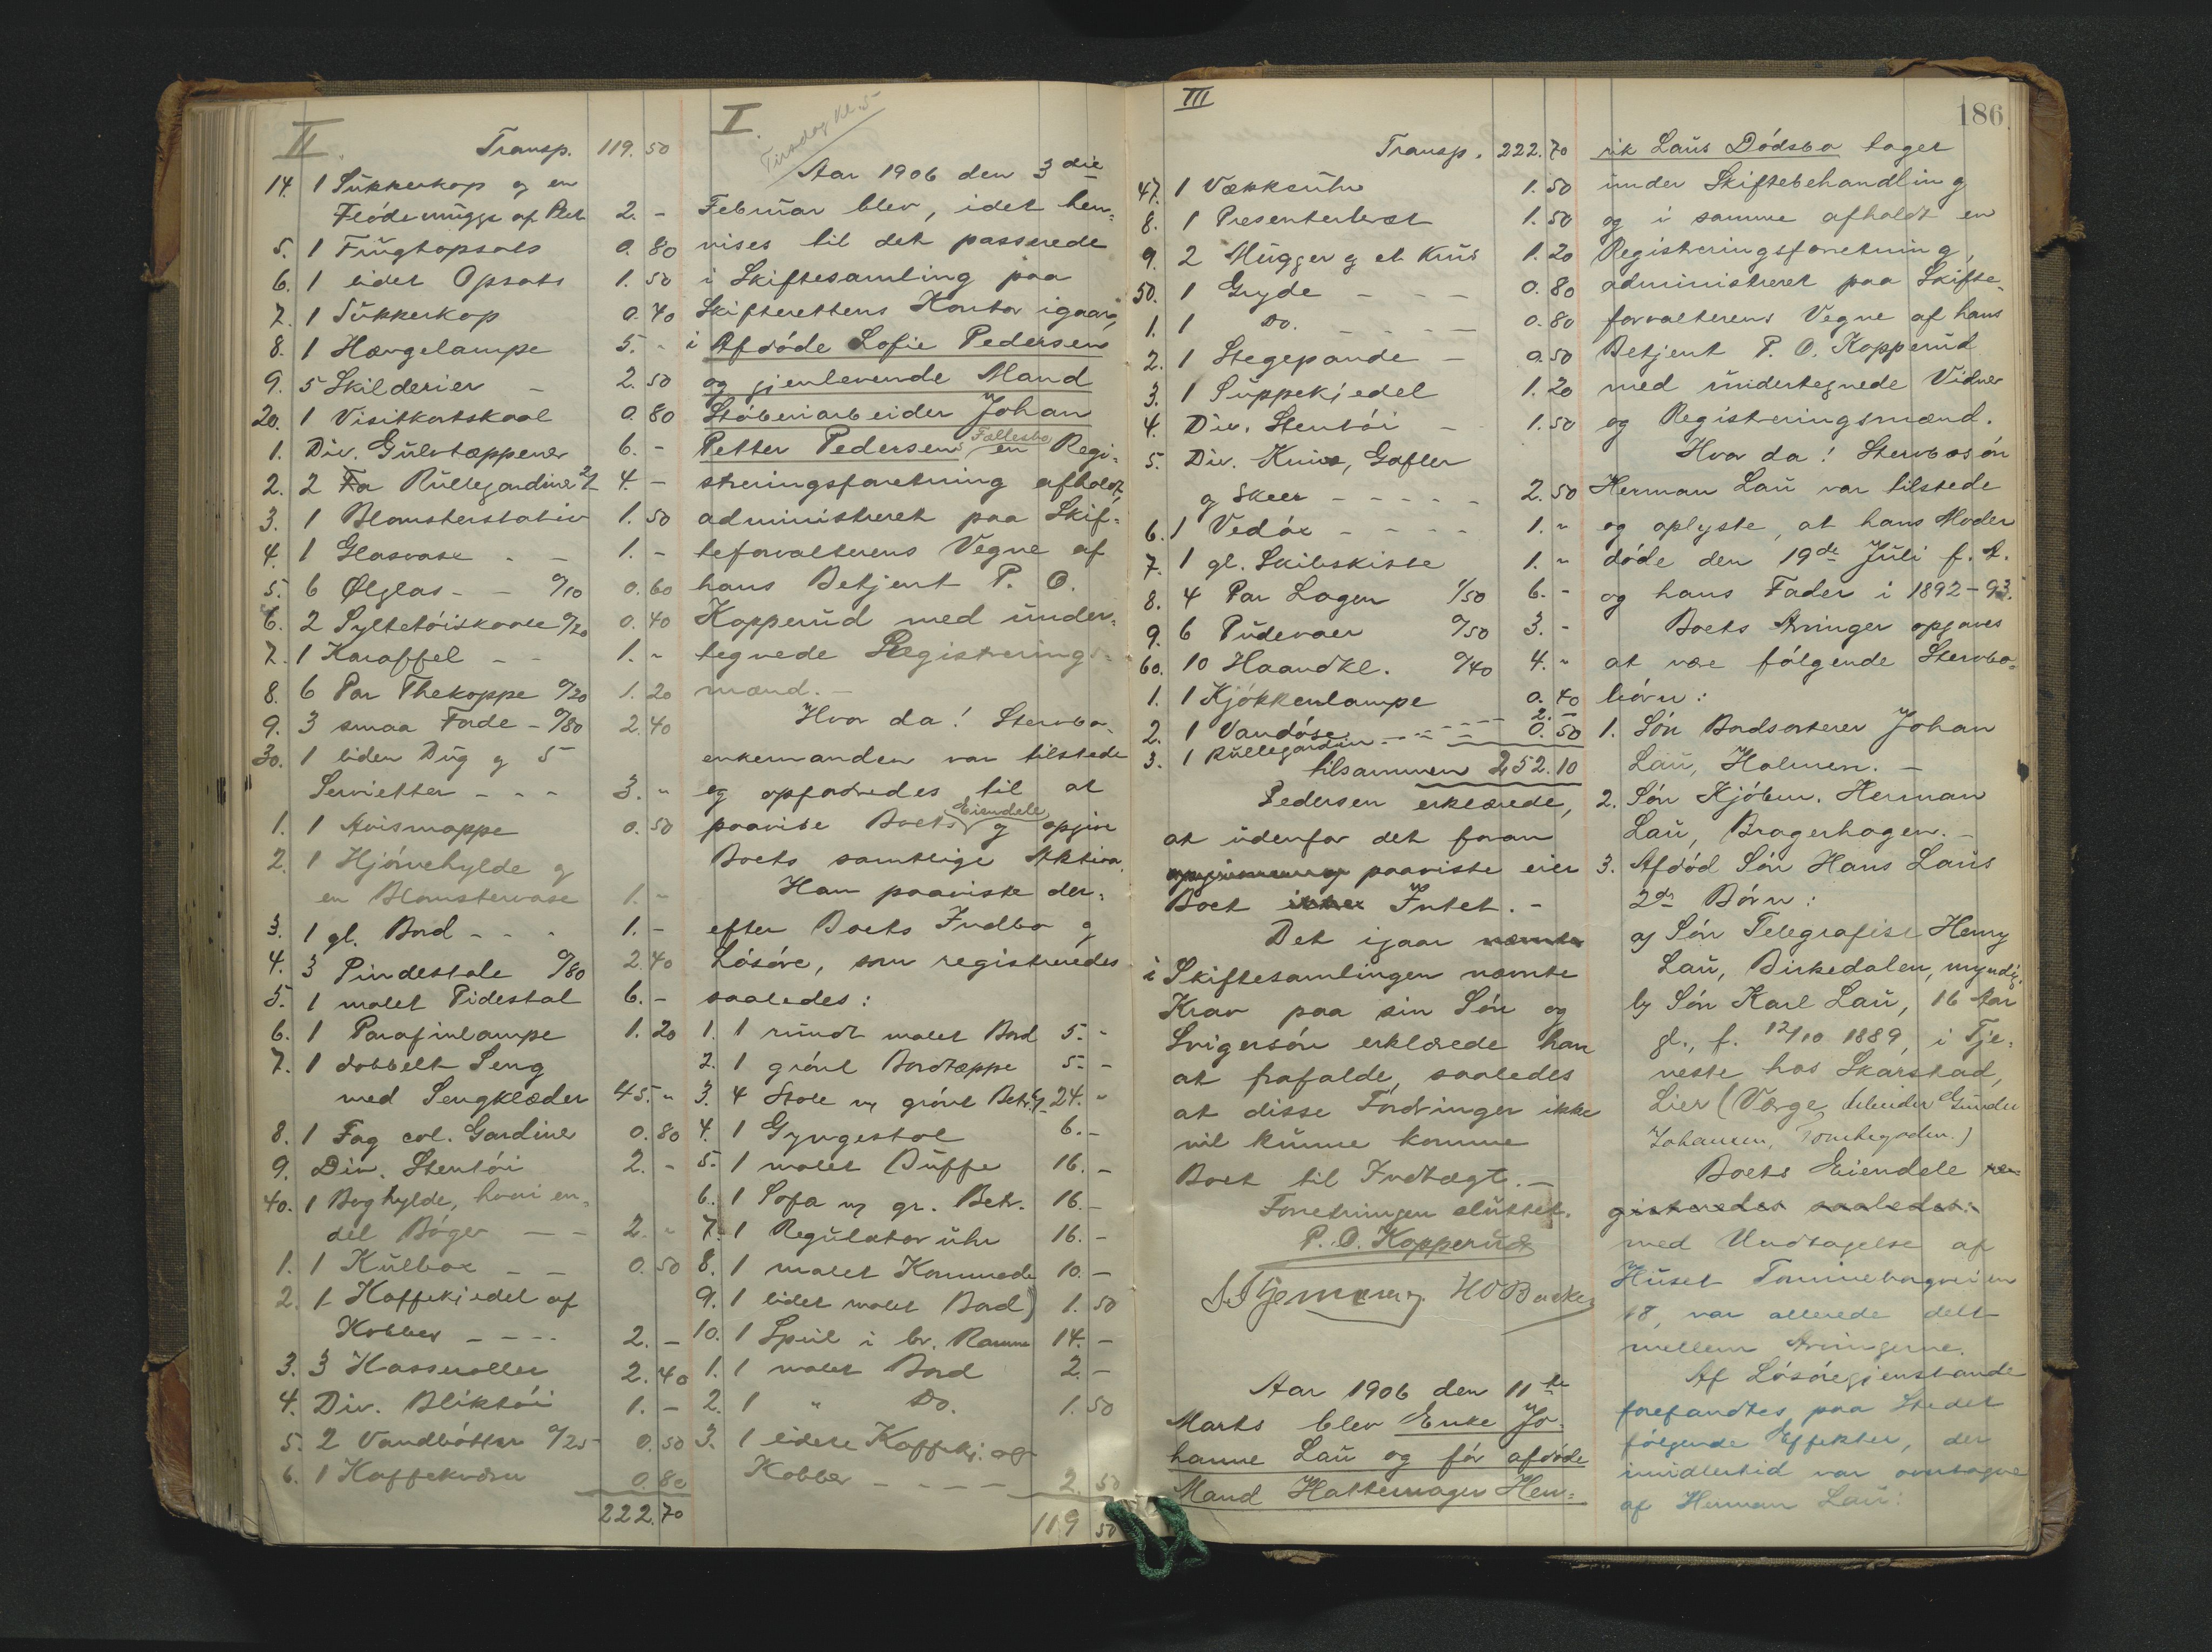 I.
Tirsdag Kl. 5
Aar 1906 den 3die
Februar blev, idet hen-
vises til det passerede
i Skiftesamling paa
Skifterettens Kontor igaar,
i Afdöde Sofie Pedersens
og gjenlevende Mand
Stöberiarbeider Johan
Petter Pedersens Fællesbo en Regi-
streringsforretning afholdt,
administreret paa Skif-
teforvalterens Vegne af
hans Betjent P. O.
Kopperud med under-
tegnede Registrerings-
mænd. -
Hvor da! Stervbo-
enkemanden var tilstede
og opfordredes til at
paavise Boets Eiendele og opgive
Boets samtlige Aktiva.
Han paaviste der-
efter Boets Indbo og
Lösöre, som registreredes
saaledes:
1. 1 rundt malet Bord 5. -
2. 1 grönt Bordtæppe 5. -
3. 4 Stole m/ grönt Betr. 24. "
4. 1 Gyngestol 6. -
5. 1 malet Buffe 16. -
6. 1 Sofa m/ gr. Betr. 16. -
7. 1 Regulator uhr 16. -
8. 1 malet Kommode 10. -
9. 1 lidet malet Bord 1. 50
10. 1 Speil i br. Ramme 14. -
1. 1 malet Bord 2. -
2. 1 " Do. 1. 50
3. 1 lidere Kaffekj. af
Kobber - - - - 2. 50
119 50
II.
Transp. 119. 50
14. 1 Sukkerkop og en
Flödemugge af Plet 2. -
5. 1 Frugtopsats 0. 80
6. 1 lidet Opsats 1. 50
7. 1 Sukkerkop 0. 40
8. 1 Hængelampe 5. -
9. 5 Skilderier - 2. 50
20. 1 Visitkortskaal 0. 80
1. Div. Gulvtæpper 6. -
2. 2 Fa Rullegardiner 2/- 4. -
3. 1 Blomsterstativ 1. 50
4. 1 Glasvase - - 1. -
5. 6 Ölglas - - 0/10 0. 60
6. 2 Syltetöiskaale 0/20 0. 40
7. 1 Karaffel - - 1. "
8. 6 Par Thekoppe 0/20 1. 20
9. 3 smaa Fade - 0/80 2. 40
30. 1 liden Dug og 5
Servietter - - - 3. "
1. 1 Avismappe 0. 50
2. 1 Hjörnehylde og
en Blomstervase 1. "
3. 1 gl. Bord - - - 1. -
4. 3 Pindestole 0/80 2. 40
5. 1 malet Pidestal 6. -
6. 1 Parafinlampe 1. 20
7. 1 dobbelt Seng
med Sengklæder 45. "
8. 1 Fag col. Gardiner 0. 80
9. Div. Stentöi 2. -
40. 1 Boghylde, hvori en-
del Böger - - 2. "
1. 1 Kulbox - - 0. 50
2. 1 Kaffekjedel af
Kobber - - - - 2. -
3. 3 Kasseroller 2. 40
4. Div. Bliktöi 1. -
5. 2 Vandbötter 0/25 0. 50
6. 1 Kaffekværn 0. 80
222. 70
III
Transp. 222. 70
47. 1 Vækkeruhr 1. 50
8. 1 Presenterbræt 1. 50
9. 2 Mugger og et Krus 1. 20
50. 1 Gryde - - - 0. 80
1. 1 Do. - - - - 0. 80
2. 1 Stegepande - 0. 50
3. 1 Suppekjedel 1. 20
4. Div. Stentöi - 1. 50
5. Div. Knive, Gafler
og Skeer - - - - - 2. 50
6. 1 Vedöx - - - - 1. "
7. 1 gl. Skibskiste 1. "
8. 4 Par Lagen 1/50 6. -
9. 6 Pudevaer 0/50 3. -
60. 10 Haandkl. 0/40 4. "
1. 1 Kjökkenlampe 0. 40
2. 1 Vandöse - - - 0. 50
3. 1 Rullegardin - - - 2. -
tilsammen 252. 10
Pedersen erklærede,
at udenfor det foran
paaviste eier
Boet ikke Intet. -
Det igaar nævnte
i Skiftesamlingen nævnte
Krav paa sin Sön og
Svigersön erklærede han
at frafalde, saaledes
at disse Fordringer ikke
vil kunne komme
Boet til Indtægt. -
Forretningen sluttet.
P. O. Kopperud
Aar 1906 den 11te
Marts blev Enke Jo-
hanne Lau og för afdöde
Mand Hattemager Hen-
186
rik Laus Dödsbo taget
under Skiftebehandling
og i samme afholdt en
Registreringsforretning,
administreret paa Skifte-
forvalterens Vegne af hans
Betjent P. O. Kopperud
med undertegnede Vidner
og Registreringsmænd.
Hvor da! Stervbosön
Herman Lau var tilstede
og oplyste, at hans Moder
döde den 19de Juli f. A.
og hans Fader i 1892-93.
Boets Arvinger opgaves
at være fölgende Stervbo-
börn:
1. Sön Bordsorterer Johan
Lau, Holmen. -
2. Sön Kjöbm. Herman
Lau, Bragerhagen. -
3. Afdöd Sön Hans Laus
2de Börn:
a) Sön Telegrafist Henry
Lau, Birkedalen, myndig
b) Sön Karl Lau, 16 Aar
gl., f. 12/10 1889, i Tje-
neste hos Skarstad,
Lier (Værge Arbeider Gunder
Johansen, Tomtegaden.)
Boets Eiendele re-
gistreredes saaledes:
med Undtagelse af
Huset Tominebogveien
18, var allerede delt
mellem Arvingerne.
Af Lösöregjenstande
forefandtes paa Stedet
fölgende Effekter, der
imidlertid var overtagne
af Herman Lau: